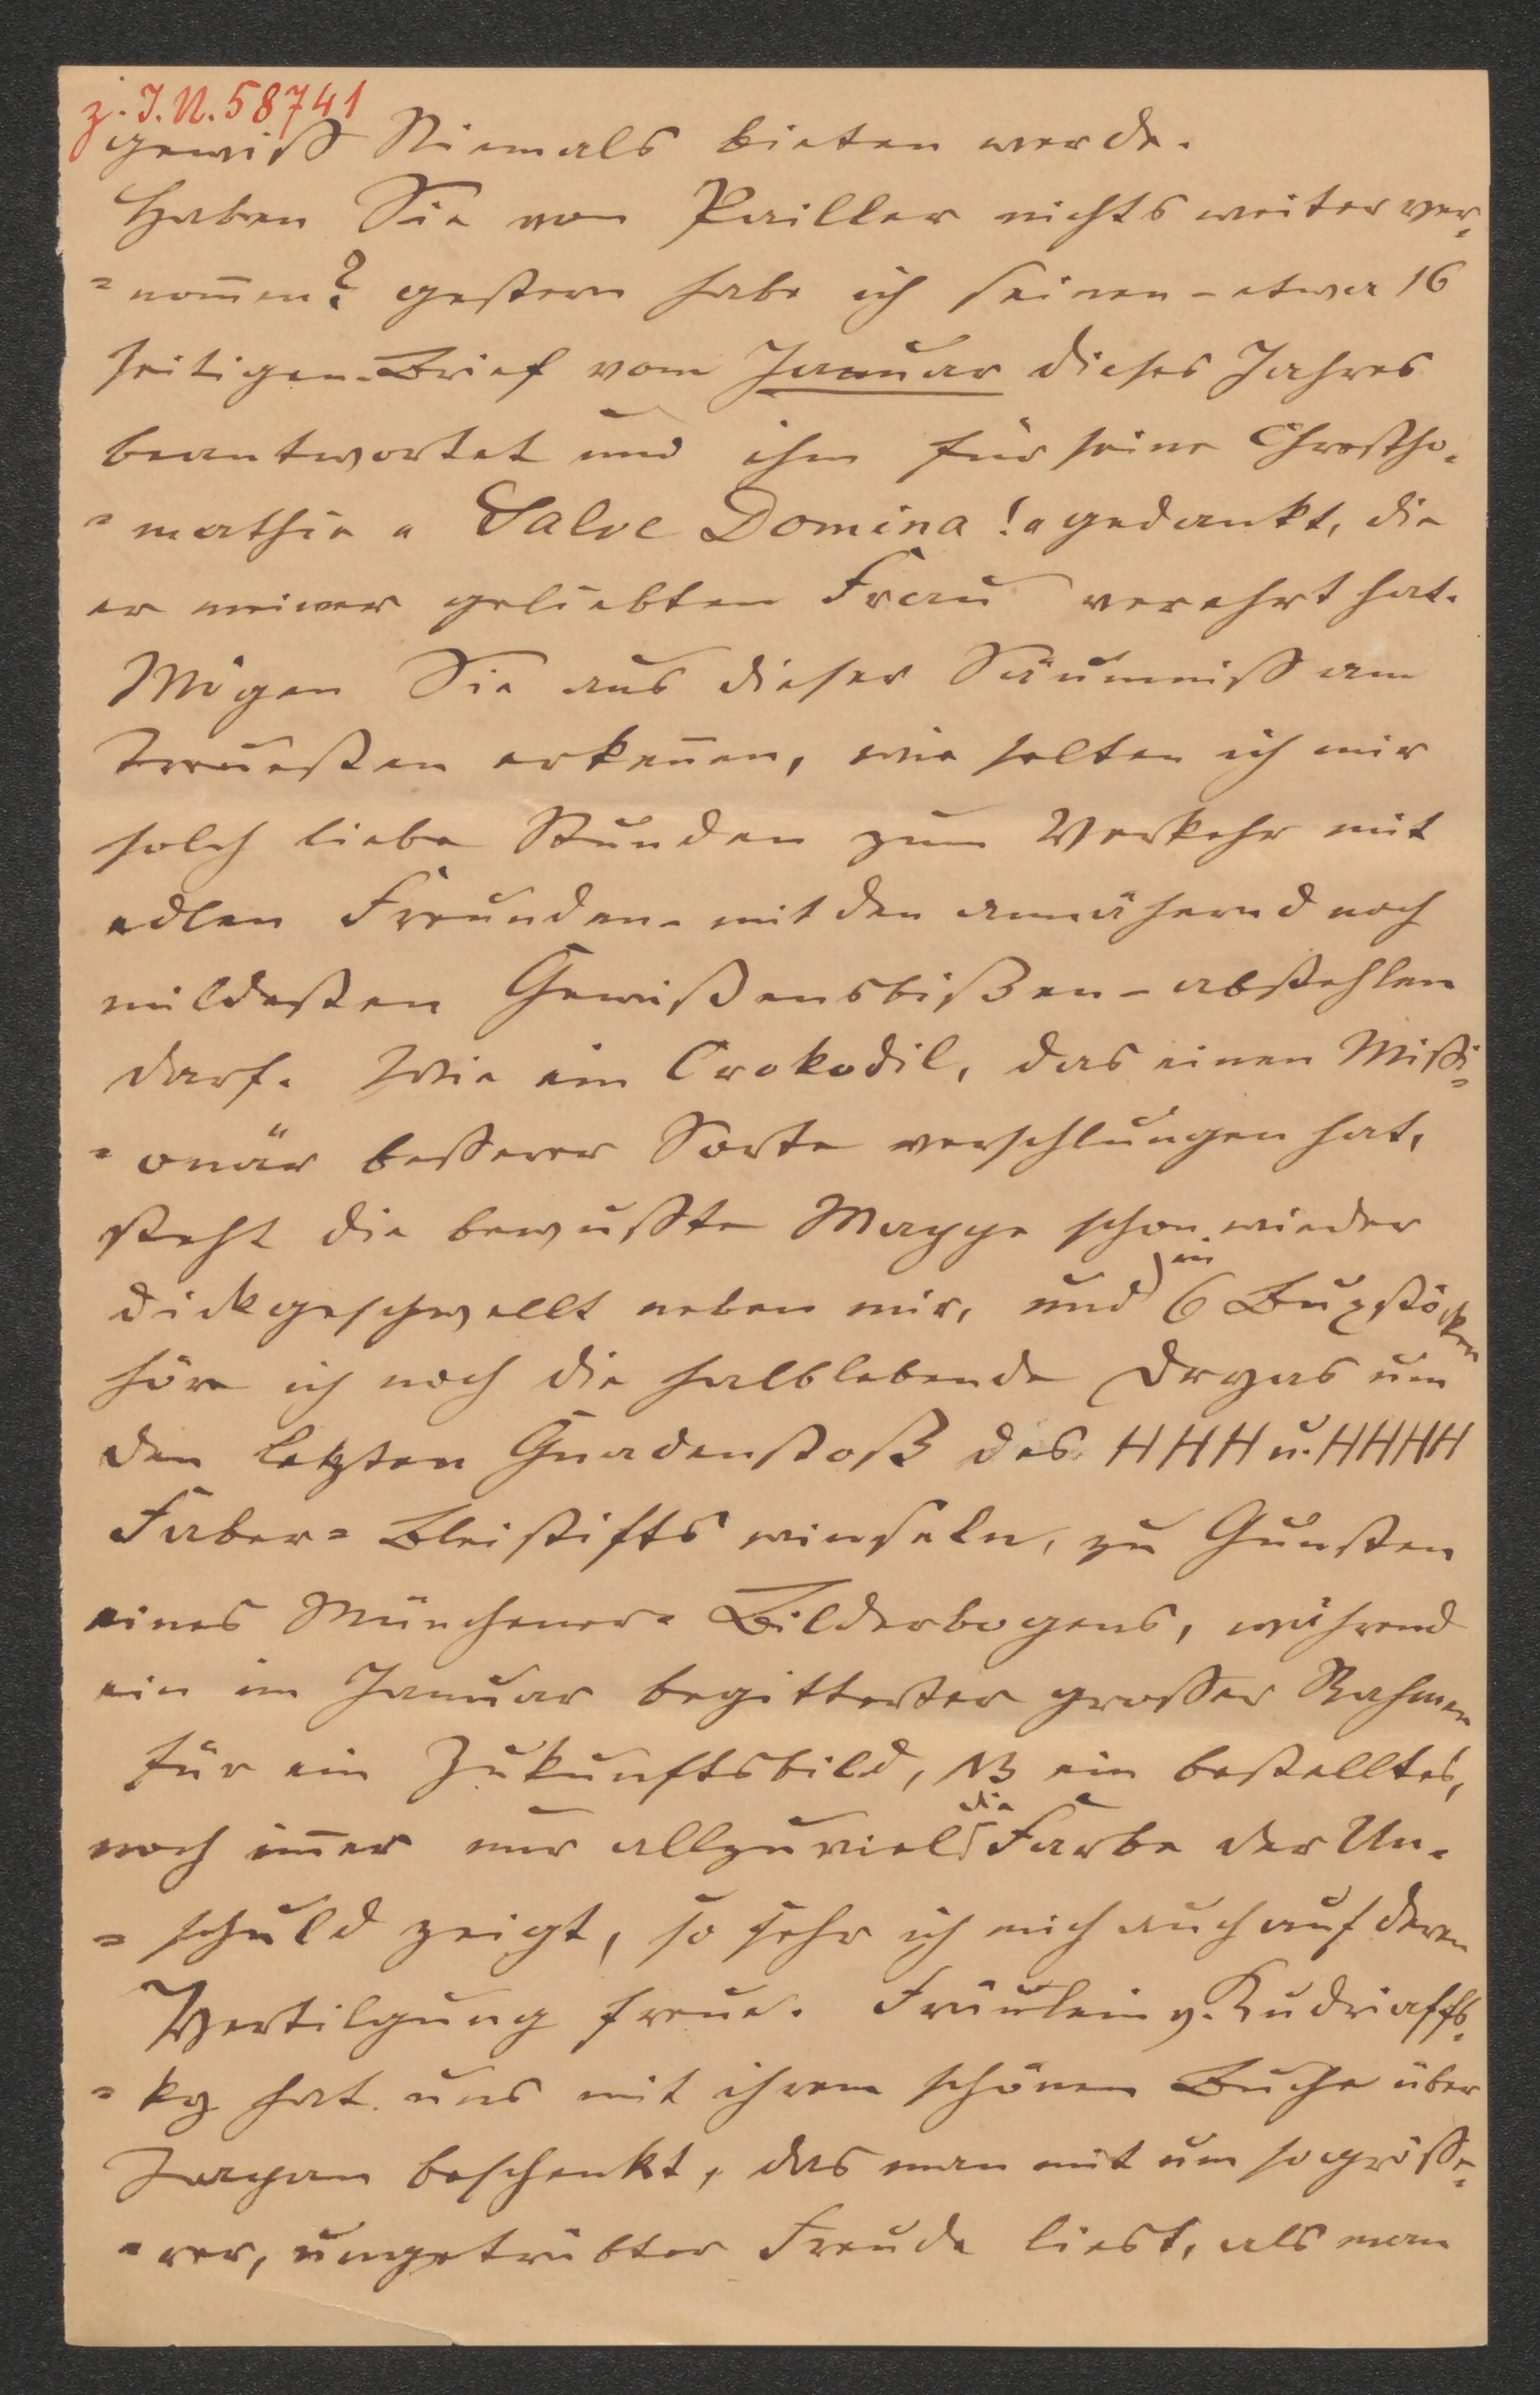 z. I. N. 58741
gewiß Niemals bieten werde.
Haben Sie von Pailler nichts weiter ver-
=nom̄en? gestern habe ich seinen – etwa 16
seitigen – Brief vom Januar dieses Jahres
beantwortet und ihm für seine Chrestho-
=mathie „Salve Domina!“ gedankt, die
er meiner geliebten Frau verehrt hat.
Mögen Sie aus dieser Säumniß am
Treuesten erken̄en, wie selten ich mir
solch liebe Stunden zum Verkehr mit
edlen Freunden – mit den annähernd noch
mildesten Gewißensbißen – abstehlen
darf. Wie ein Crokodil, das einen Missi=
=onär besserer Sorte verschlungen hat,
steht die bewußte Mappe schon wieder
dickgeschwellt neben mir, und in 6 Buxstöcken
höre ich noch die halblebende Dryas um
den letzten Gnadenstoß des HHH u. HHHH
Faber=Bleistifts winseln, zu Gunsten
eines Münchener=Bilderbogens, während
ein im Januar begitterter großer Rahmen
für ein Zukunftsbild, NB ein bestelltes,
noch im̄er nur allzuviel die Farbe der Un-
=schuld zeigt, so sehr ich mich auch auf deren
Vertilgung freue. Fräulein v. Kudriaffs-
=ky hat uns mit ihrem schönen Buche über
Japan beschenkt, das man mit um so größe=
=rer, ungetrübter Freude liest, als man